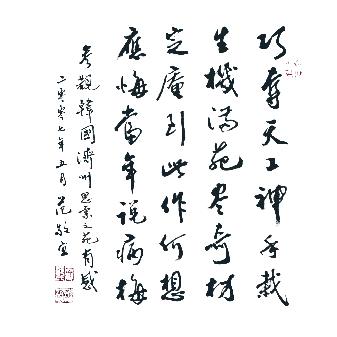 巧奪天工神手栽
生機滿苑盡奇材
定庵到此作何想
應悔當年說病梅
參觀韓國濟州思索之苑有感
二零零七年五月 范敬宜